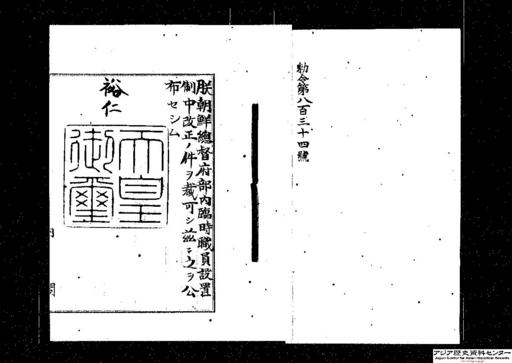 勅令第八百三十四號
朕朝鮮總督府部內臨時職員設置
制中改正ノ件ヲ裁可シ茲ニ之ヲ公
布セシム
裕仁
天皇
御璽
アジア歴史資料センター
Japan Center for Asian Historical Records